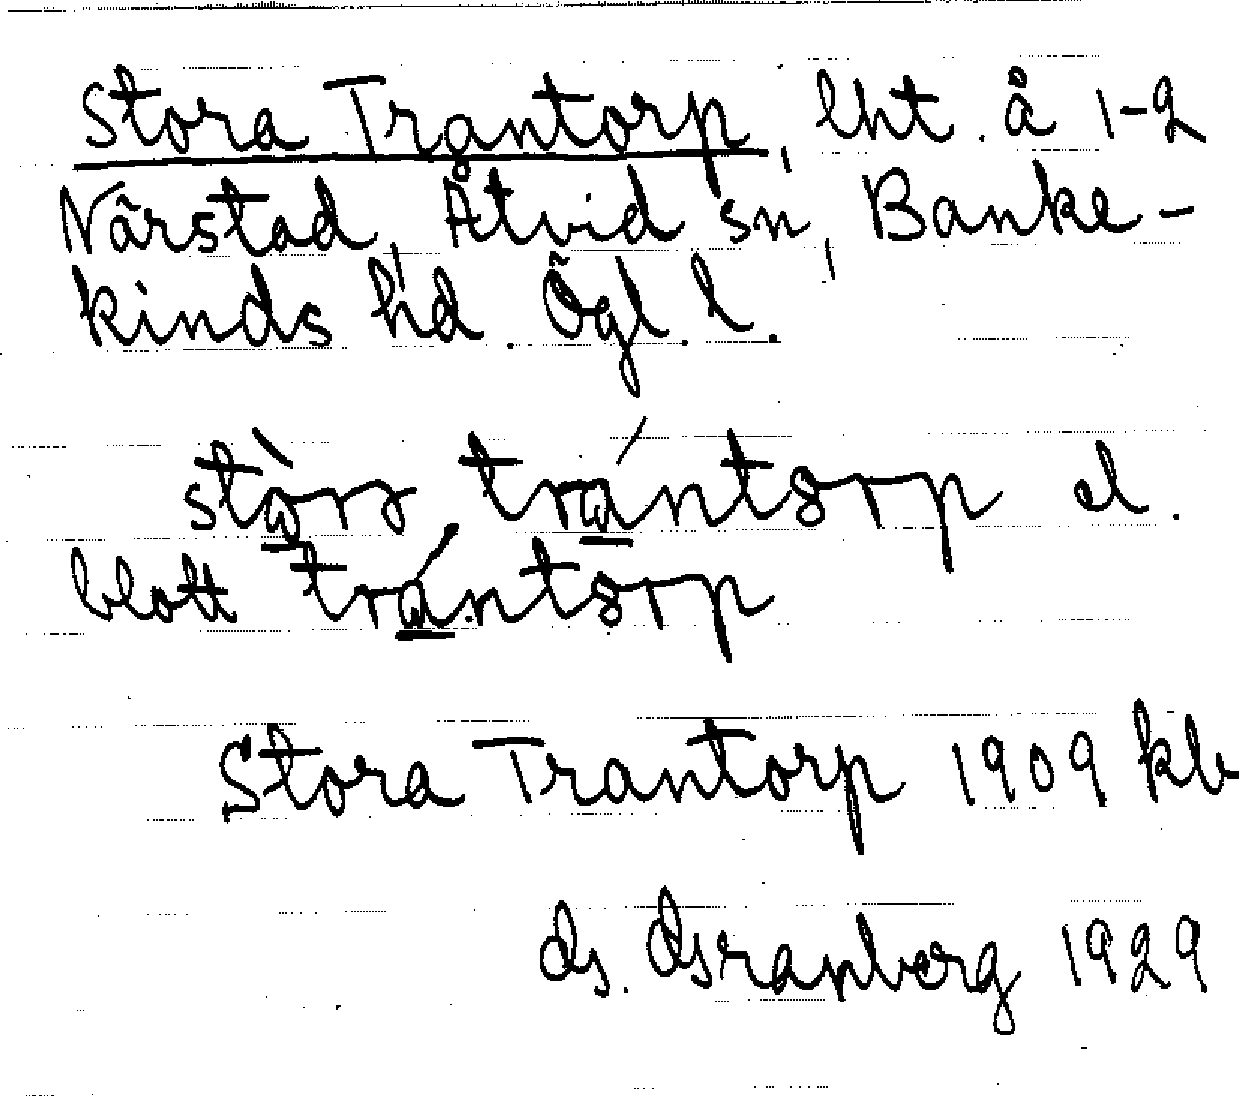 Stora Trantorp, lht. å 1-2
Närstad, Åtvid sn, Banke-
kinds hd. Ögl. l.
trántorp el.
blott trántorp
Stora Trantorp 1909 kb
Granberg 1929